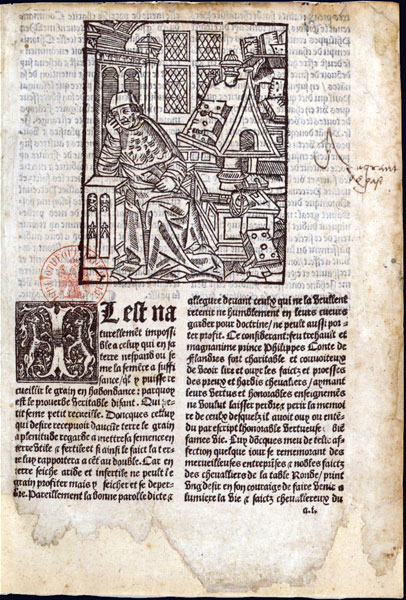 IL est na
turellemēt impossi
ble a celuy qui en sa
terre nespand ou se
me la semēce a suffi
sance/ q̃l y puisse re
cueillir le grain en habondance: parquoy
est le prouerbe veritable disant. Qui pe
tit seme petit recueille. Doncques celuy
qui desire recepuoir daulcūe terre le grain
a plenitude regarde a mettre sa semence en
terre vtile & fertile: et si ainsi le faict la ter
re luy rapportera a cēt au double. Car en
terre seiche aride et infertile ne peult le
grain profiter mais y seicher et se deper
dre. Pareillement la bonne parolle dicte &
alleguee deuant ceulx qui ne la veullent
retenir ne humblement en leurs cueurs
garder pour doctrine/ ne peult aussi por
ter profit. Ce considerant: feu treshault et
magnanime prince Philippes Conte de
Flandres soit charitable et couuoiteux
de veoir lire et ouyr les faictz et proesses
des preux et hardis cheualiers/ aymant
leurs vertus et honorables enseignemēs
ne voulut laisser perdre/ perir la memoi
re de ceulx desquelz il auoit ouy ou entē
du par escript lhonorable vertueuse
samee vie. Luy dōcques meu de telle af
fection quelque iour se rememorant des
merueilleuses entreprises & nobles faictz
des cheualiers de la table Ronde/ print
vng desir en son couraige de faire venir a
lumiere la vie & faictz cheualereux du
a.i.